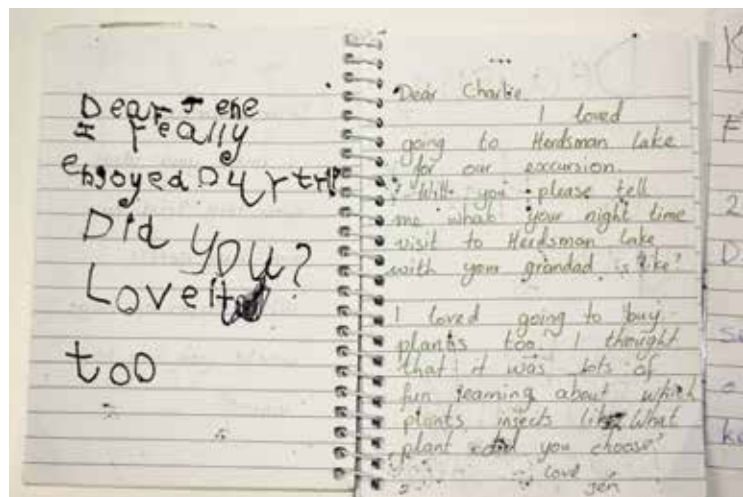 Dear Jene
I really
enjoyed Our trip
Did you?
Love it
too
Dear Charlie
I loved
going to Herdsman Lake
for our excursion.
? Will you please tell
me what your night time
visit to Herdsman Lake
with your grandad is like?
I loved going to buy
plants too. I thought
that it was lots of
fun learning about which
plants insects like. What
plant did you choose?
love
Jen
K
F
2
D